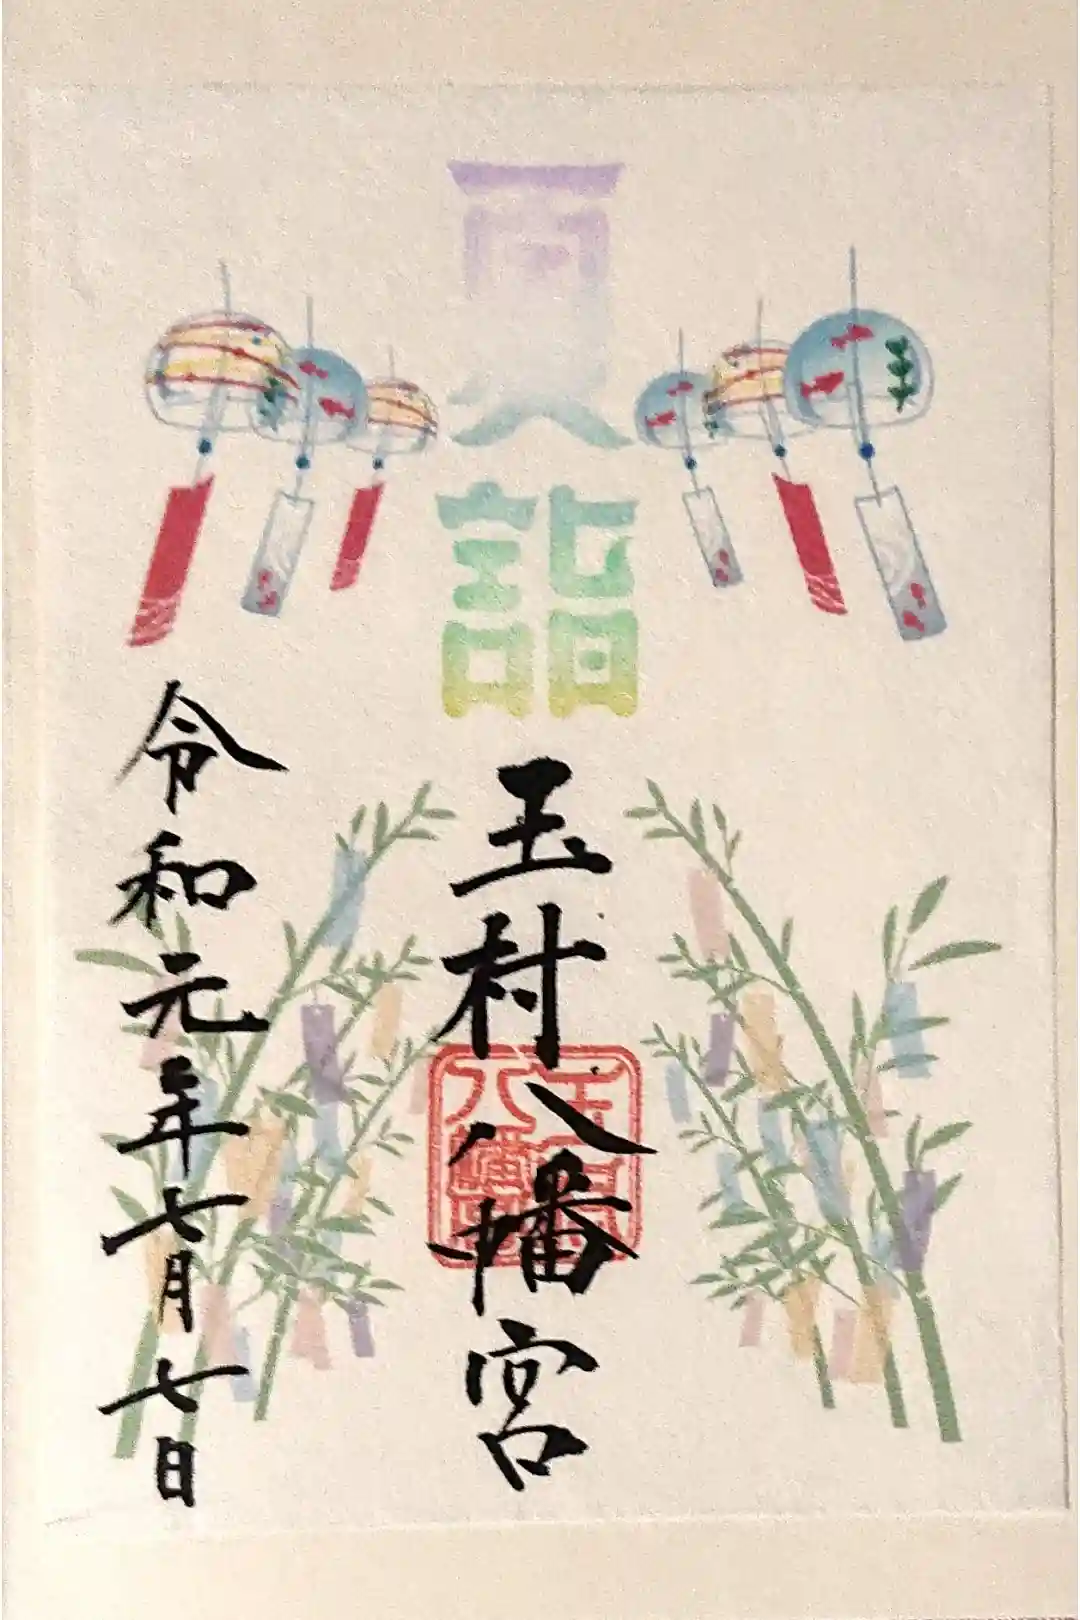 夏詣
玉村八幡宮
玉村
八幡宮
令和元年七月七日